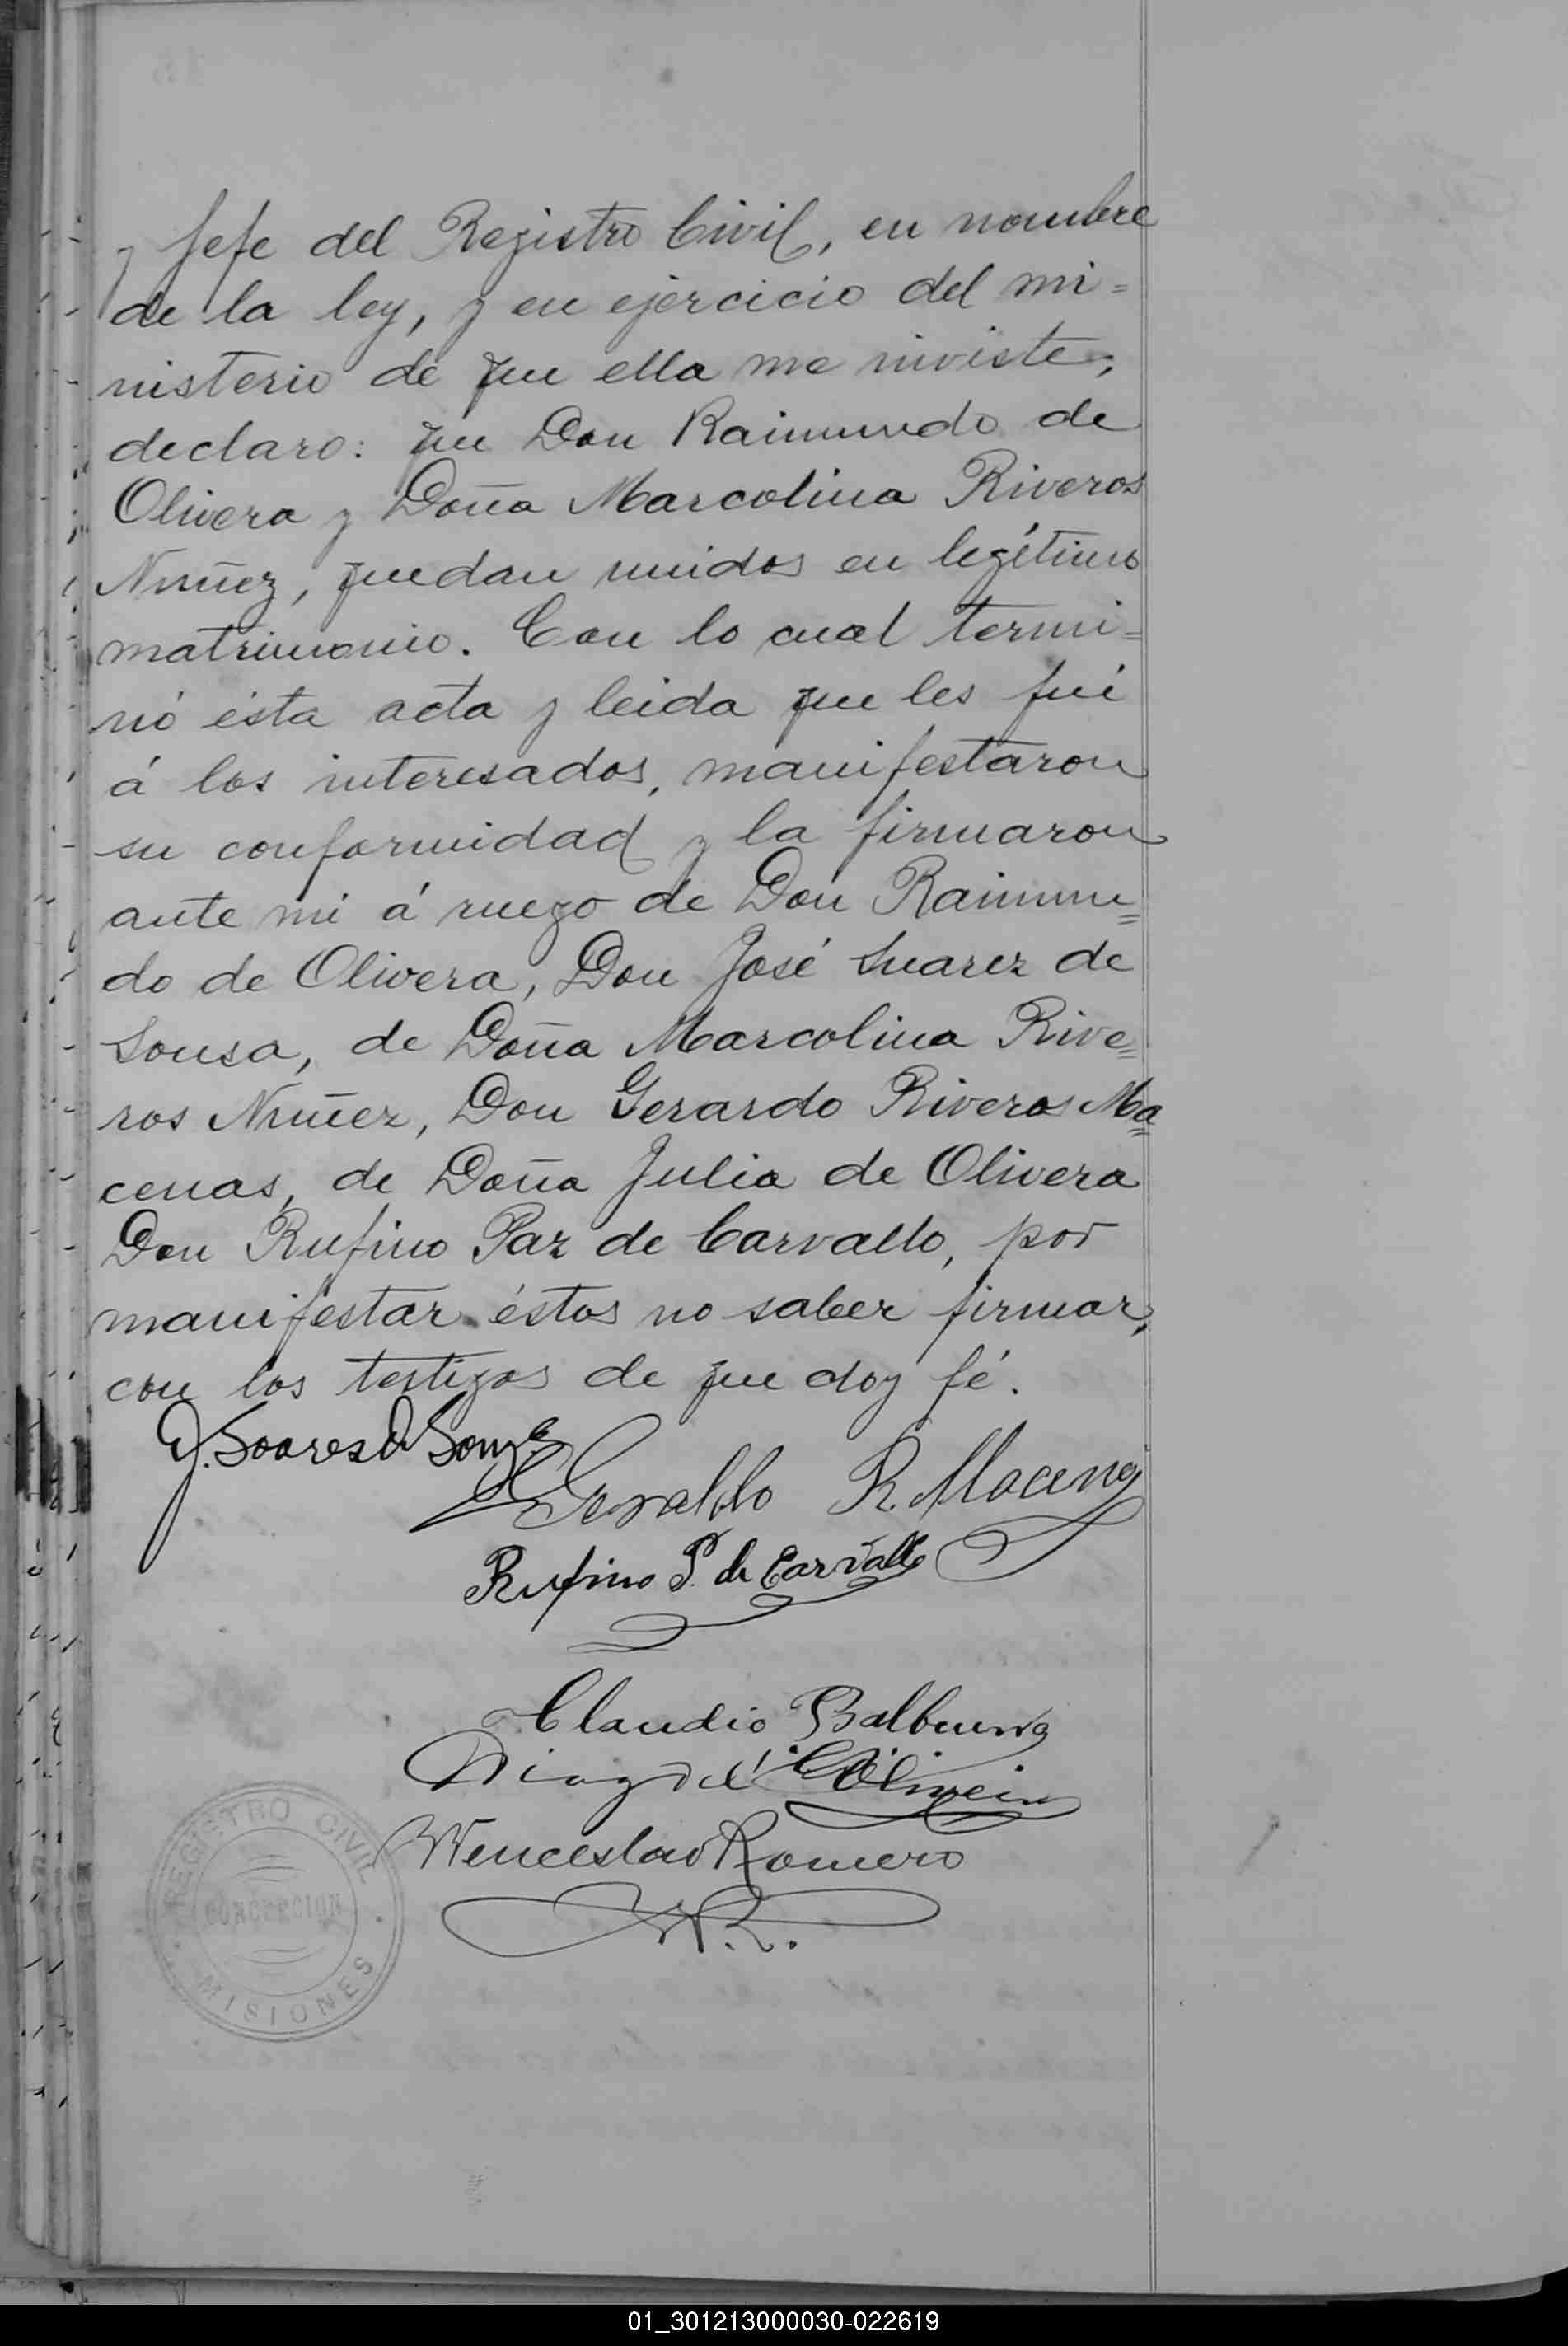 y Jefe del Registro Civil, en nombre
de la ley, y en ejercicio del mi=
nisterio de que ella me inviste,
declaro: que Don Raimundo de
Olivera y Doña Marcolina Riveros
Nuñez, quedan unidos en legítimo
matrimonio. Con lo cual termi=
nó ésta acta y leida que les fué
á los interesados, manifestaron
su conformidad y la firmaron
ante mi á ruego de Don Raimun=
do de Olivera, Don José Suarez de
Sousa, de Doña Marcolina Rive=
ros Nuñez, Don Gerardo Riveros Ma=
cenas, de Doña Julia de Olivera
Don Rufino Paz de Carvallo, por
manifestar éstos no saber firmar,
con los testigos de que doy fé.
J. Soares d Souza
R. Macena
Rufino P. de Carvallo
Claudio Balbuena
Wenceslao Romero
W.R.
REGISTRO CIVIL
CONCEPCION
MISIONES
01_301213000030-022619